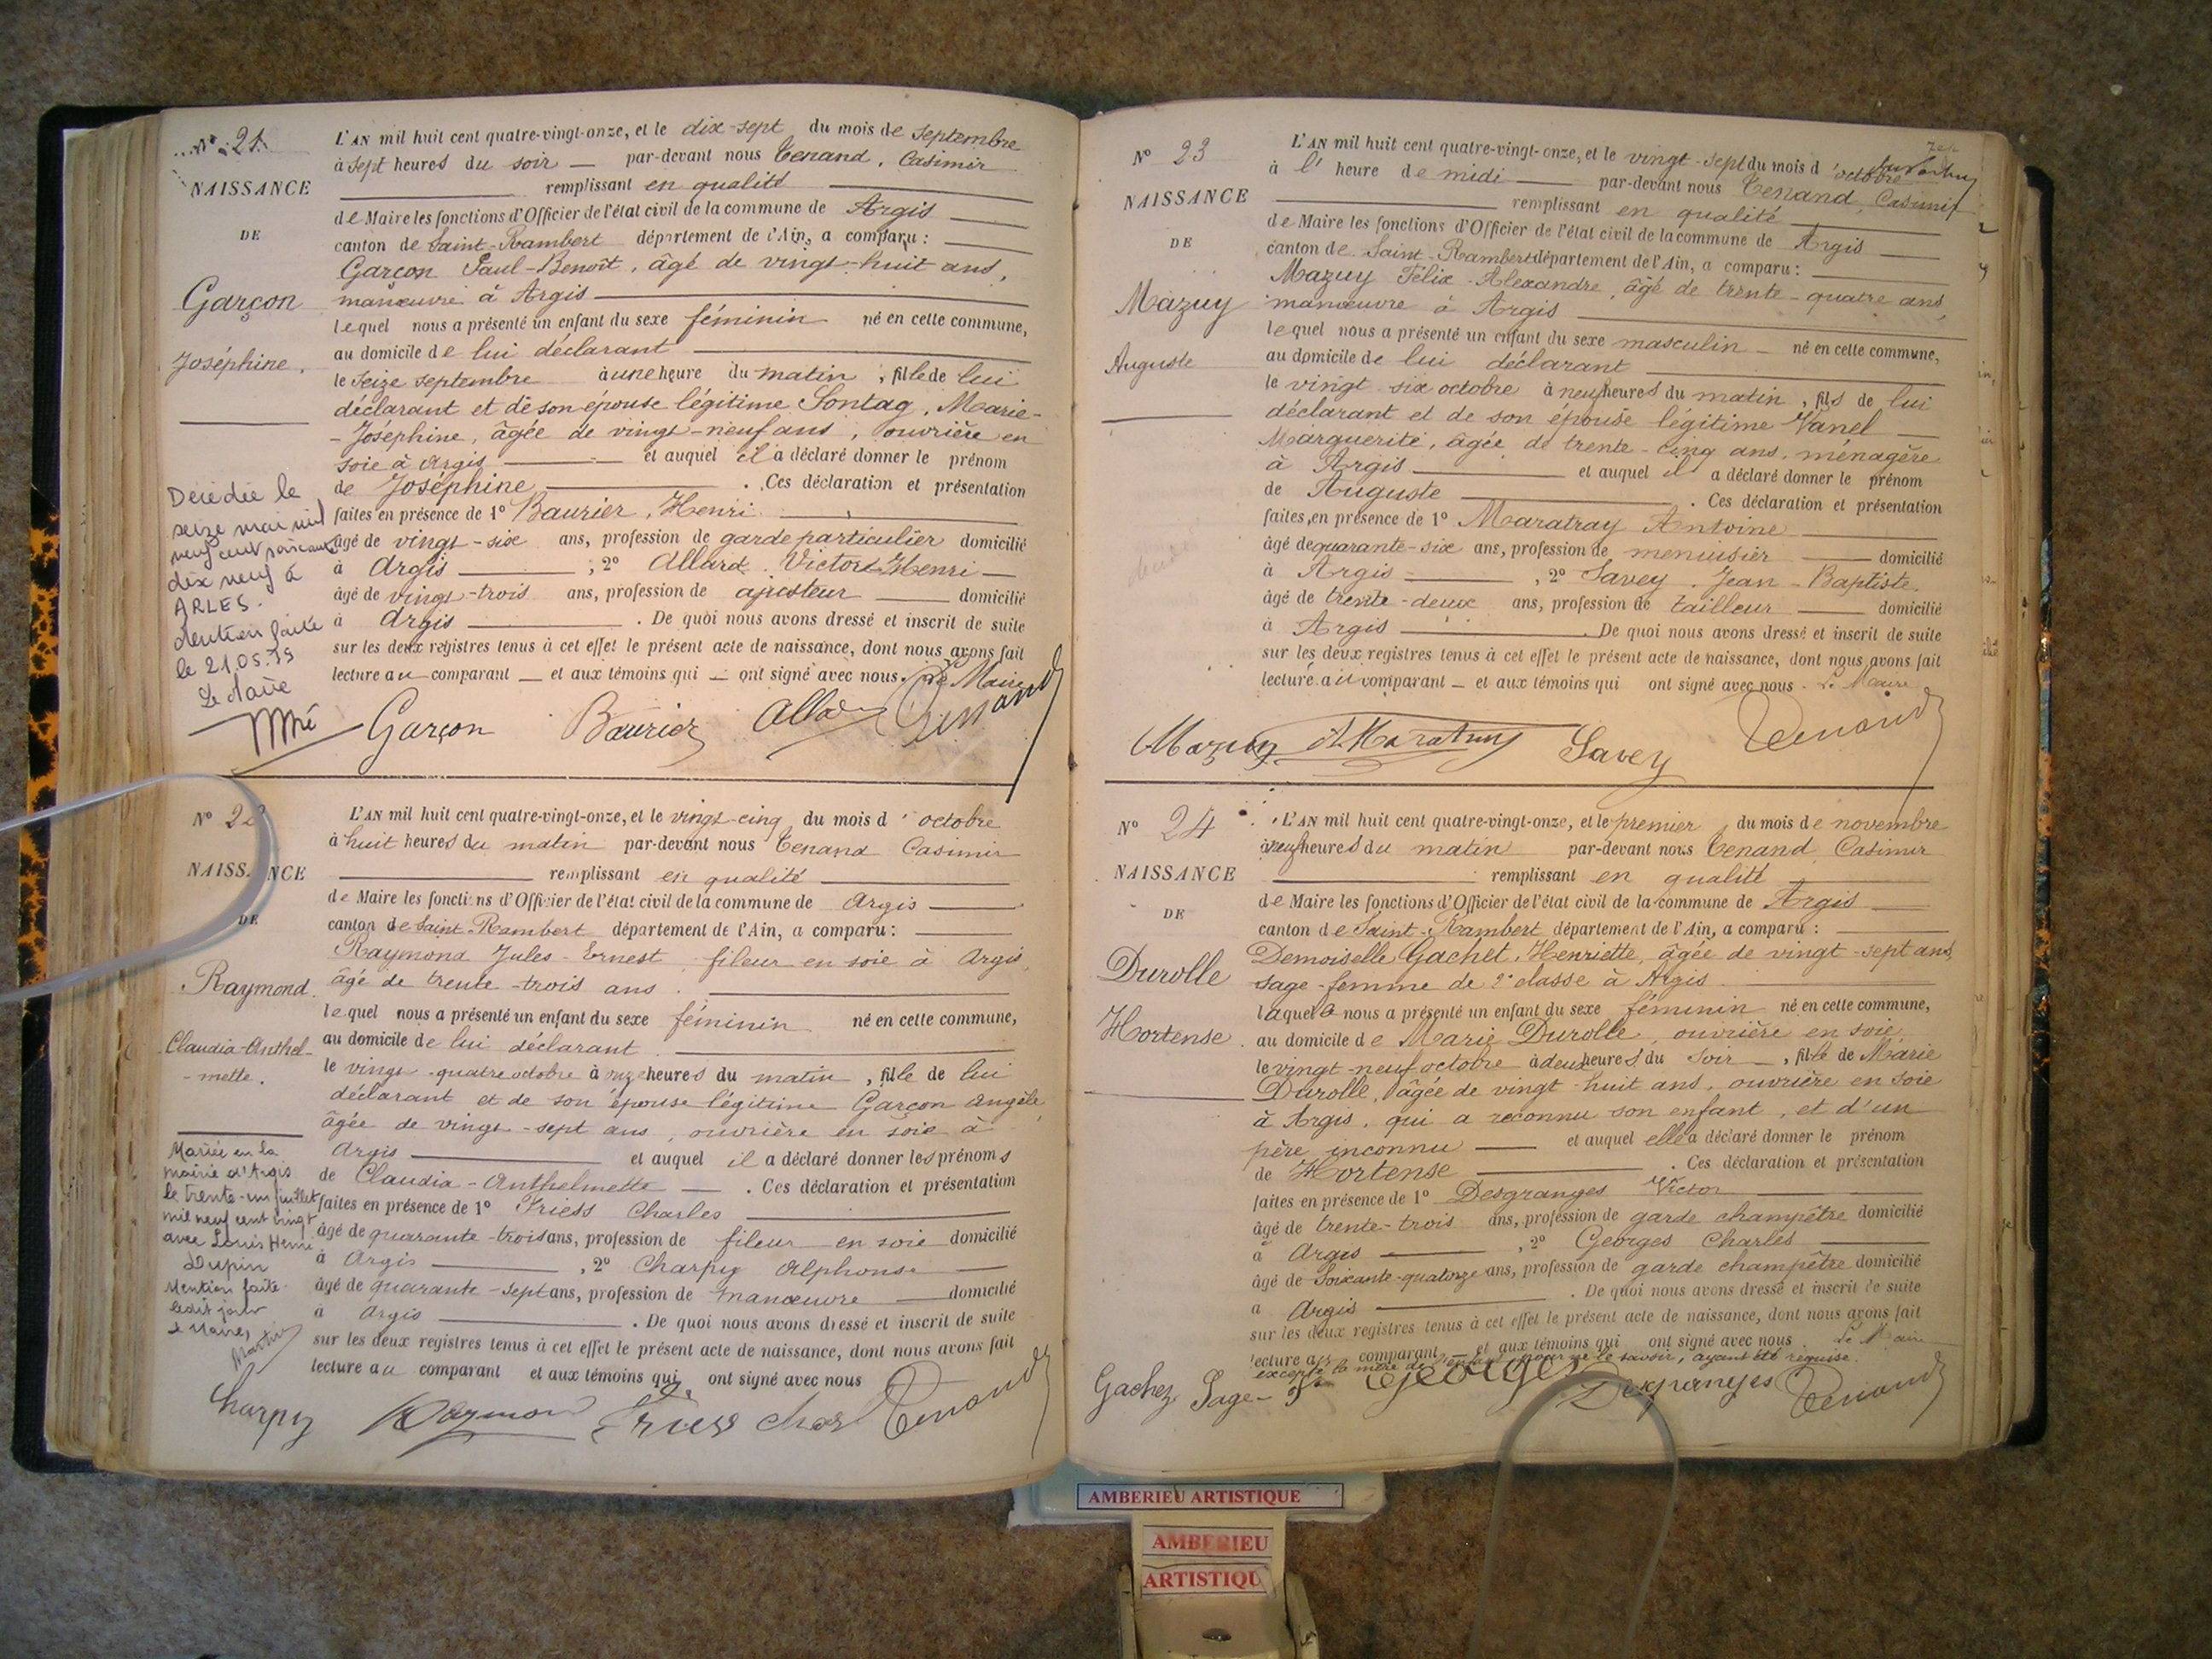 Nº 21.
NAISSANCE
DE
Garçon
Joséphine.
L'AN mil huit cent quatre-vingt-onze, et le dix-sept du mois de septembre
à sept heures du soir — par-devant nous Tenand, Casimir
remplissant en qualité
de Maire les fonctions d'Officier de l'état civil de la commune de Argis
canton de Saint-Rambert département de l'Ain, a comparu :
Garçon Paul-Benoît, âgé de vingt-huit ans,
manœuvre à Argis
lequel nous a présenté un enfant du sexe féminin né en cette commune,
au domicile de lui déclarant
le seize septembre à une heure du matin, fille de lui
déclarant et de son épouse légitime Sontag, Marie-
-Joséphine, âgée de vingt-neuf ans, ouvrière en
soie à Argis — et auquel il a déclaré donner le prénom
de Joséphine — . Ces déclaration et présentation
faites en présence de 1º Baurier, Henri
âgé de vingt-six ans, profession de garde particulier domicilié
à Argis — ; 2º Allard Victor Henri —
âgé de vingt-trois ans, profession de ajusteur — domicilié
à Argis — . De quoi nous avons dressé et inscrit de suite
sur les deux registres tenus à cet effet le présent acte de naissance, dont nous avons fait
lecture au comparant — et aux témoins qui — ont signé avec nous. Le Maire
Décédée le
seize mai mil
neuf cent soixante
dix neuf à
ARLES.
Mention faite
le 21.05.79
Le Maire
Garçon Baurier Allard Tenand
Nº 22
NAISSANCE
DE
Raymond.
Claudia-Anthel-
-mette.
L'AN mil huit cent quatre-vingt-onze, et le vingt-cinq du mois d'octobre
à huit heures du matin par-devant nous Tenand Casimir
remplissant en qualité
de Maire les fonctions d'Officier de l'état civil de la commune de Argis
canton de Saint-Rambert département de l'Ain, a comparu :
Raymond Jules-Ernest, fileur en soie à Argis,
âgé de trente-trois ans.
lequel nous a présenté un enfant du sexe féminin né en cette commune,
au domicile de lui déclarant.
le vingt-quatre octobre à onze heures du matin, fille de lui
déclarant et de son épouse légitime Garçon Angèle,
âgée de vingt-sept ans, ouvrière en soie à
Argis — et auquel il a déclaré donner les prénoms
de Claudia-Anthelmette — . Ces déclaration et présentation
faites en présence de 1º Friess Charles
âgé de quarante-trois ans, profession de fileur en soie domicilié
à Argis — , 2º Charpy Alphonse
âgé de quarante-sept ans, profession de manœuvre — domicilié
à Argis — . De quoi nous avons dressé et inscrit de suite
sur les deux registres tenus à cet effet le présent acte de naissance, dont nous avons fait
lecture au comparant et aux témoins qui ont signé avec nous
Mariée en la
mairie d'Argis
le trente-un juillet
mil neuf cent vingt
avec Louis Henri
Dupin
Mention faite
ledit jour
Le Maire,
Charpy Raymond Friess Chas Tenand
Nº 23
NAISSANCE
DE
Mazuy
Auguste
L'AN mil huit cent quatre-vingt-onze, et le vingt-sept du mois d'octobre
à l'heure de midi — par-devant nous Tenand, Casimir
remplissant en qualité
de Maire les fonctions d'Officier de l'état civil de la commune de Argis
canton de Saint-Rambert département de l'Ain, a comparu :
Mazuy Félix-Alexandre, âgé de trente-quatre ans,
manœuvre à Argis
lequel nous a présenté un enfant du sexe masculin — né en cette commune,
au domicile de lui déclarant
le vingt-six octobre à neuf heures du matin, fils de lui
déclarant et de son épouse légitime Vanel
Marguerite, âgée de trente-cinq ans, ménagère
à Argis — et auquel il a déclaré donner le prénom
de Auguste — . Ces déclaration et présentation
faites en présence de 1º Maratray Antoine
âgé de quarante-six ans, profession de menuisier — domicilié
à Argis — , 2º Savey, Jean-Baptiste,
âgé de trente-deux ans, profession de tailleur — domicilié
à Argis — . De quoi nous avons dressé et inscrit de suite
sur les deux registres tenus à cet effet le présent acte de naissance, dont nous avons fait
lecture au comparant — et aux témoins qui ont signé avec nous. Le Maire
Mazuy A. Maratray Savey Tenand
Nº 24
NAISSANCE
DE
Durolle
Hortense.
L'AN mil huit cent quatre-vingt-onze, et le premier du mois de novembre
à neuf heures du matin par-devant nous Tenand Casimir
remplissant en qualité
de Maire les fonctions d'Officier de l'état civil de la commune de Argis
canton de Saint-Rambert département de l'Ain, a comparu :
Demoiselle Gachet, Henriette, âgée de vingt-sept ans,
sage-femme de 2e classe à Argis.
laquelle nous a présenté un enfant du sexe féminin né en cette commune,
au domicile de Marie Durolle, ouvrière en soie,
le vingt-neuf octobre à deux heures du soir —, fille de Marie
Durolle, âgée de vingt-huit ans, ouvrière en soie
à Argis, qui a reconnu son enfant, et d'un
père inconnu — et auquel elle a déclaré donner le prénom
de Hortense — . Ces déclaration et présentation
faites en présence de 1º Desgranges Victor
âgé de trente-trois ans, profession de garde champêtre domicilié
à Argis — , 2º Georges Charles
âgé de soixante-quatorze ans, profession de garde champêtre domicilié
à Argis — . De quoi nous avons dressé et inscrit de suite
sur les deux registres tenus à cet effet le présent acte de naissance, dont nous avons fait
lecture aux comparant — et aux témoins qui ont signé avec nous Le Maire
excepté la mère de l'enfant pour ne le savoir, ayant été requise.
Gachez Sage-fe Georges Desgranges Tenand
AMBERIEU ARTISTIQUE
AMBERIEU
ARTISTIQU